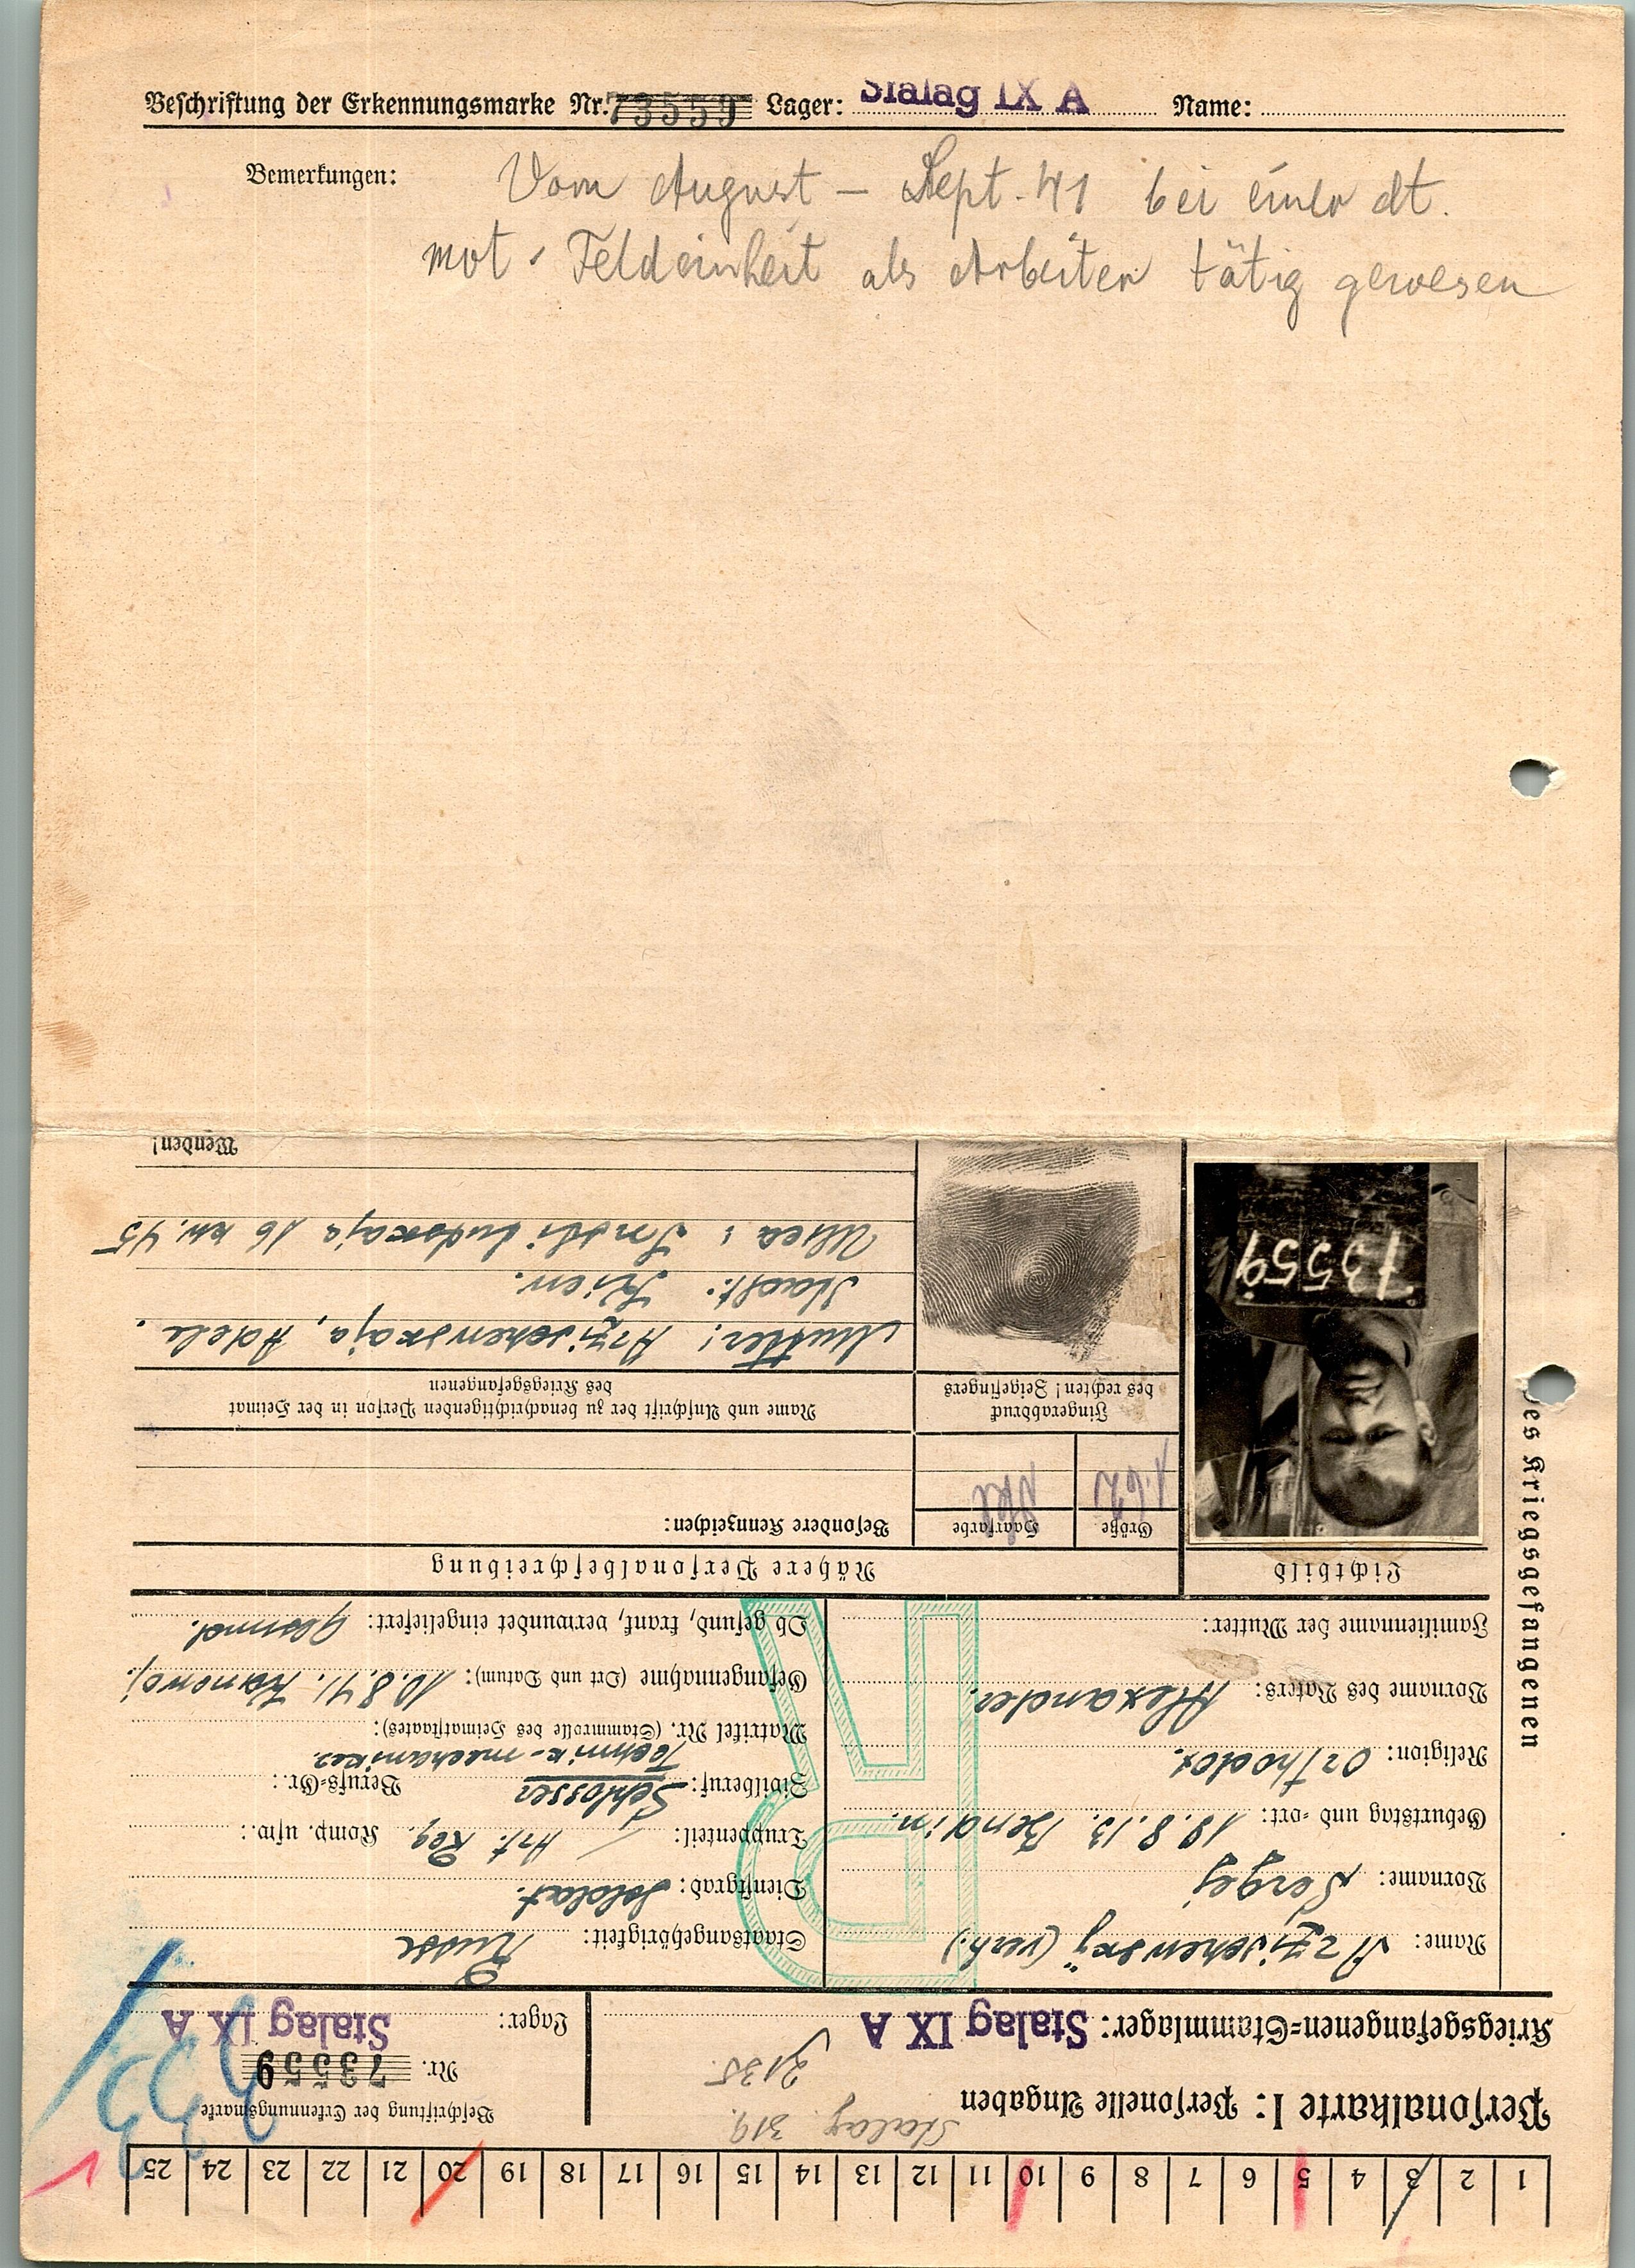 Beschriftung der Erkennungsmarke Nr. 73559 Lager: Stalag IX A Name:
Bemerkungen: Vom August – Sept. 41 bei einer dt.
mot. Feldeinheit als Arbeiter tätig gewesen
1 2 3 4 5 6 7 8 9 10 11 12 13 14 15 16 17 18 19 20 21 22 23 24 25
Stalag 319.
Personalkarte I: Personelle Angaben
2135.
Kriegsgefangenen-Stammlager: Stalag IX A
Beschriftung der Erkennungsmarke
Nr. 73559
Lager: Stalag IX A
des Kriegsgefangenen
Name: Arzischewskÿ (verh.)
Vorname: Sergej
Geburtstag und -ort: 18.8.13. Bendin.
Religion: Orthodox.
Vorname des Vaters: Alexander.
Familienname der Mutter:
Staatsangehörigkeit: Russe
Dienstgrad: Soldat.
Truppenteil: Art. Reg. Komp. usw.:
Zivilberuf: Schlosser Berufs-Gr.:
Technik-mechaniker.
Matrikel Nr. (Stammrolle des Heimatstaates):
Gefangennahme (Ort und Datum): 10.8.41. Kanew
Ob gesund, krank, verwundet eingeliefert: gesund.
Lichtbild
73559
Nähere Personalbeschreibung
Größe Haarfarbe Besondere Kennzeichen:
1.62
Fingerabdruck
des rechten! Zeigefingers
Name und Anschrift der zu benachrichtigenden Person in der Heimat
des Kriegsgefangenen
Mutter: Arzischewskaja, Adele.
Stadt: Kiew.
Ulica: 16 kw. 45
Wenden!